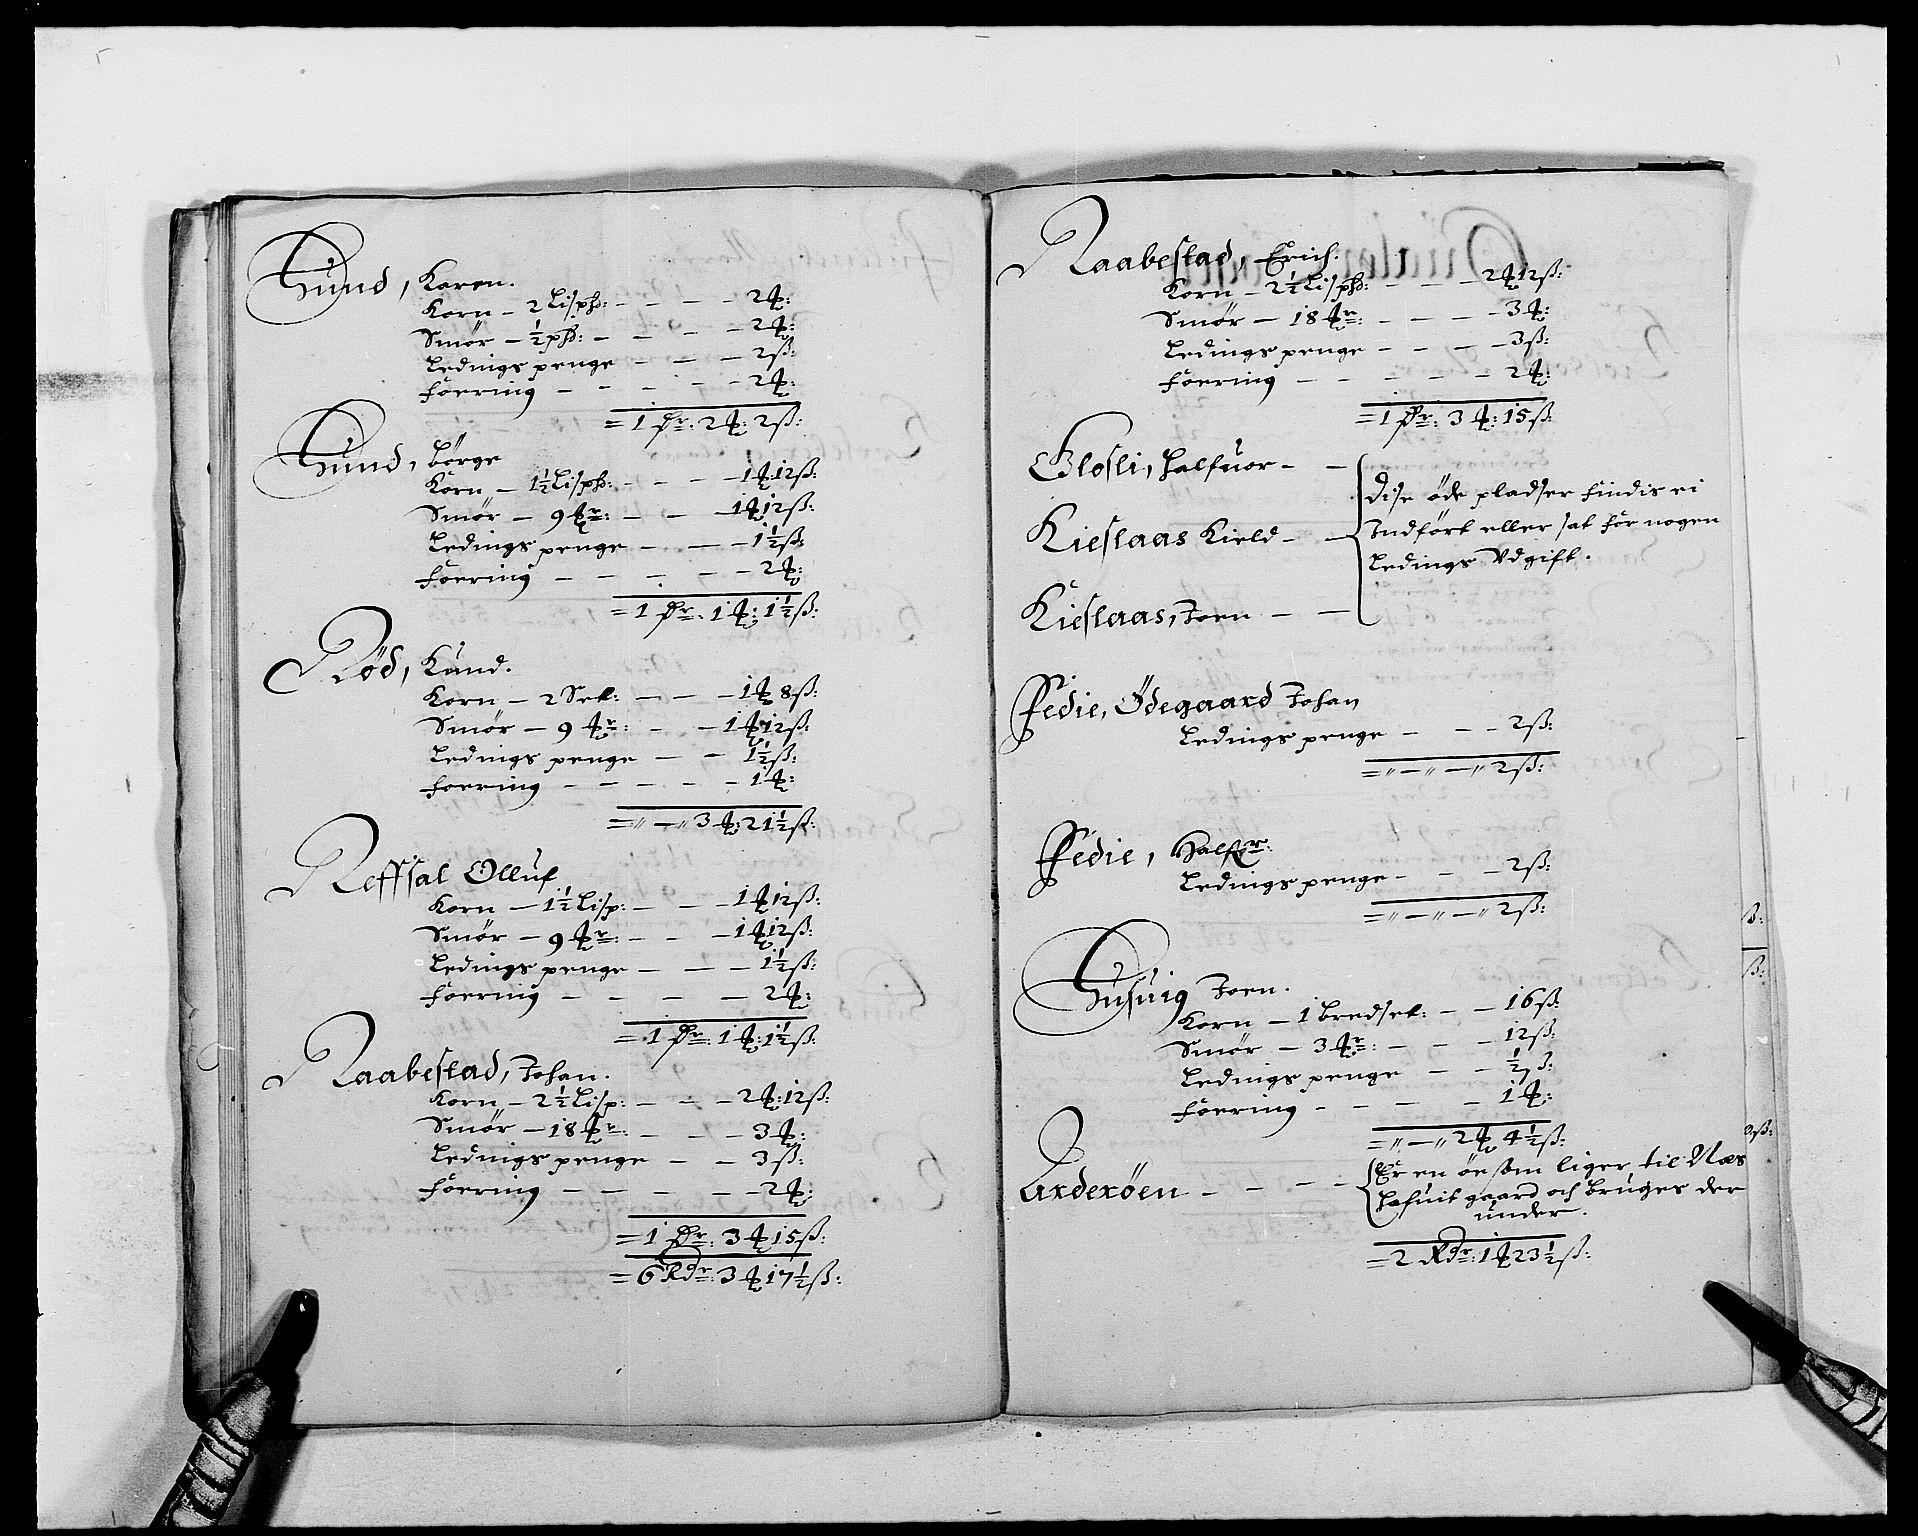 Sund, Karen.
Korn – 2 Lispd: – – – – 2 ₰:
Smör – ½ pd: – – – – 2 ₰:
Ledings penge – – – 2 ß:
Foering – – – – – 2 ₰:
= 1 Dr: 2 ₰: 2 ß:
Sund, Börge
Korn – 1½ Lispd: – – – 1 ₰: 12 ß:
Smör – 9 ₰r: – – – 1 ₰ 12 ß:
Ledings penge – – – 1½ ß:
Foering – – – – – 2 ₰:
= 1 Dr: 1 ₰: 1½ ß:
Röd, Knud.
Korn – 2 Set: – – – 1 ₰ 8 ß:
Smör – 9 ₰r: – – – 1 ₰ 12 ß:
Ledings penge – – 1½ ß:
Foering – – – – – 1 ₰:
= " – " 3 ₰: 21½ ß:
Reffsal Olluf
Korn – 1½ Lisp: – – – 1 ₰ 12 ß:
Smör – 9 ₰r: – – – 1 ₰ 12 ß:
Ledings penge – – – 1½ ß:
Foering – – – – 2 ₰:
= 1 Dr: 1 ₰: 1½ ß:
Raabestad, Johan.
Korn – 2½ Lisp: – – – 2 ₰: 12 ß:
Smör – 18 ₰r: – – – 3 ₰:
Ledings penge – – 3 ß:
Foering – – – – – 2 ₰:
= 1 Dr: 3 ₰ 15 ß:
= 6 Rdr: 3 ₰ 17½ ß:
Raabestad, Erich.
Korn – 2½ Lispd: – – – 2 ₰ 12 ß:
Smör – 18 ₰r: – – – – 3 ₰:
Ledings penge – – – – 3 ß:
Foering – – – – – 2 ₰:
= 1 Dr: 3 ₰: 15 ß:
Glosli, Halfuor – –
Dise öde pladser findis ei
Kieslaas Kield – –
Indfört eller sat for nogen
Ledings Udgift.
Kieslaas, Joen – –
Fedie, Ödegaard Johan
Ledings penge – – – 2 ß:
= " – " – " 2 ß:
Fedie, Halfr:
Ledings penge – – – 2 ß:
= " – " – " 2 ß:
Susuig Joen.
Korn – 1 bredset: – – 16 ß:
Smör – 3 ₰r: – – – 12 ß:
Ledings penge – – ½ ß:
Foering – – – – 1 ₰:
= " – " 2 ₰ 4½ ß:
Arderöen – – – –
Er en öe som liger til Næs
Hafuit gaard och bruges der
under.
= 2 Rdr: 1 ₰ 23½ ß: